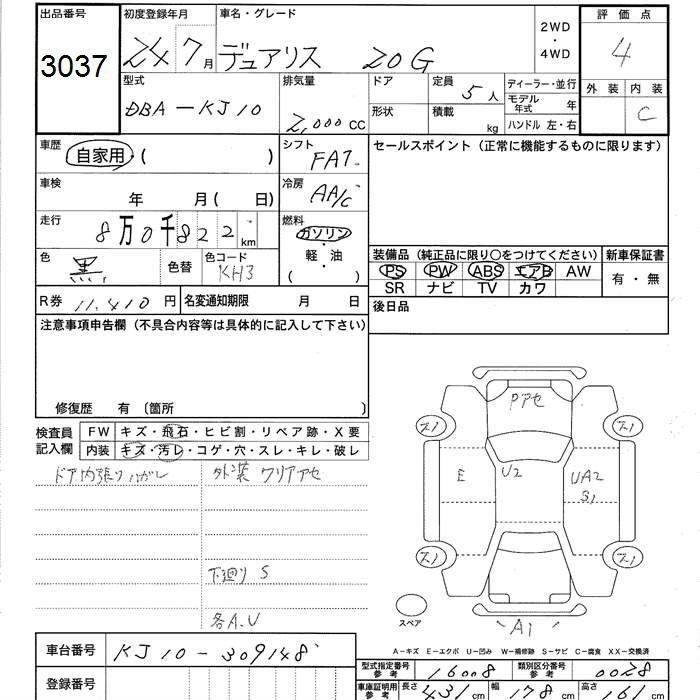 出品番号 初度登録年月 車名・グレード 2WD・4WD 評価点
3037 24 7月 デュアリス 20G 4
型式 排気量 ドア 定員 5人 ディーラー・並行 外装 内装
DBA-KJ10 2,000cc 形状 積載 kg モデル年式 年 C
ハンドル 左・右
車歴 自家用・( ) シフト FAT セールスポイント(正常に機能するものに限ります)
車検 年 月( 日) 冷房 AA/C
走行 8万0千822km 燃料 ガソリン・軽・油 ( )
色 黒 色替 色コード KH3
装備品(純正品に限り○をつけてください) 新車保証書
PS PW ABS エアB AW 有・無
SR ナビ TV カワ
R券 11,410円 名変通知期限 月 日 後日品
注意事項申告欄(不具合内容等は具体的に記入して下さい)
修復歴 有〔箇所 〕
検査員記入欄 FW キズ・飛石・ヒビ割・リペア跡・X要
内装 キズ・汚レ・コゲ・穴・スレ・キレ・破レ
ドア内張りハガレ 外装 クリアアセ
下廻り S
各A、U
Pアセ
スノ スノ
E U2 UA2
S1
スノ スノ
スペア A1
A-キズ E-エクボ U-凹み W-補修跡 S-サビ C-腐食 XX-交換済
車台番号 KJ10-309148
型式指定番号 参考 16008 類別区分番号 参考 0028
登録番号 車庫証明用 参考 長さ 431cm 幅 178cm 高さ 161cm